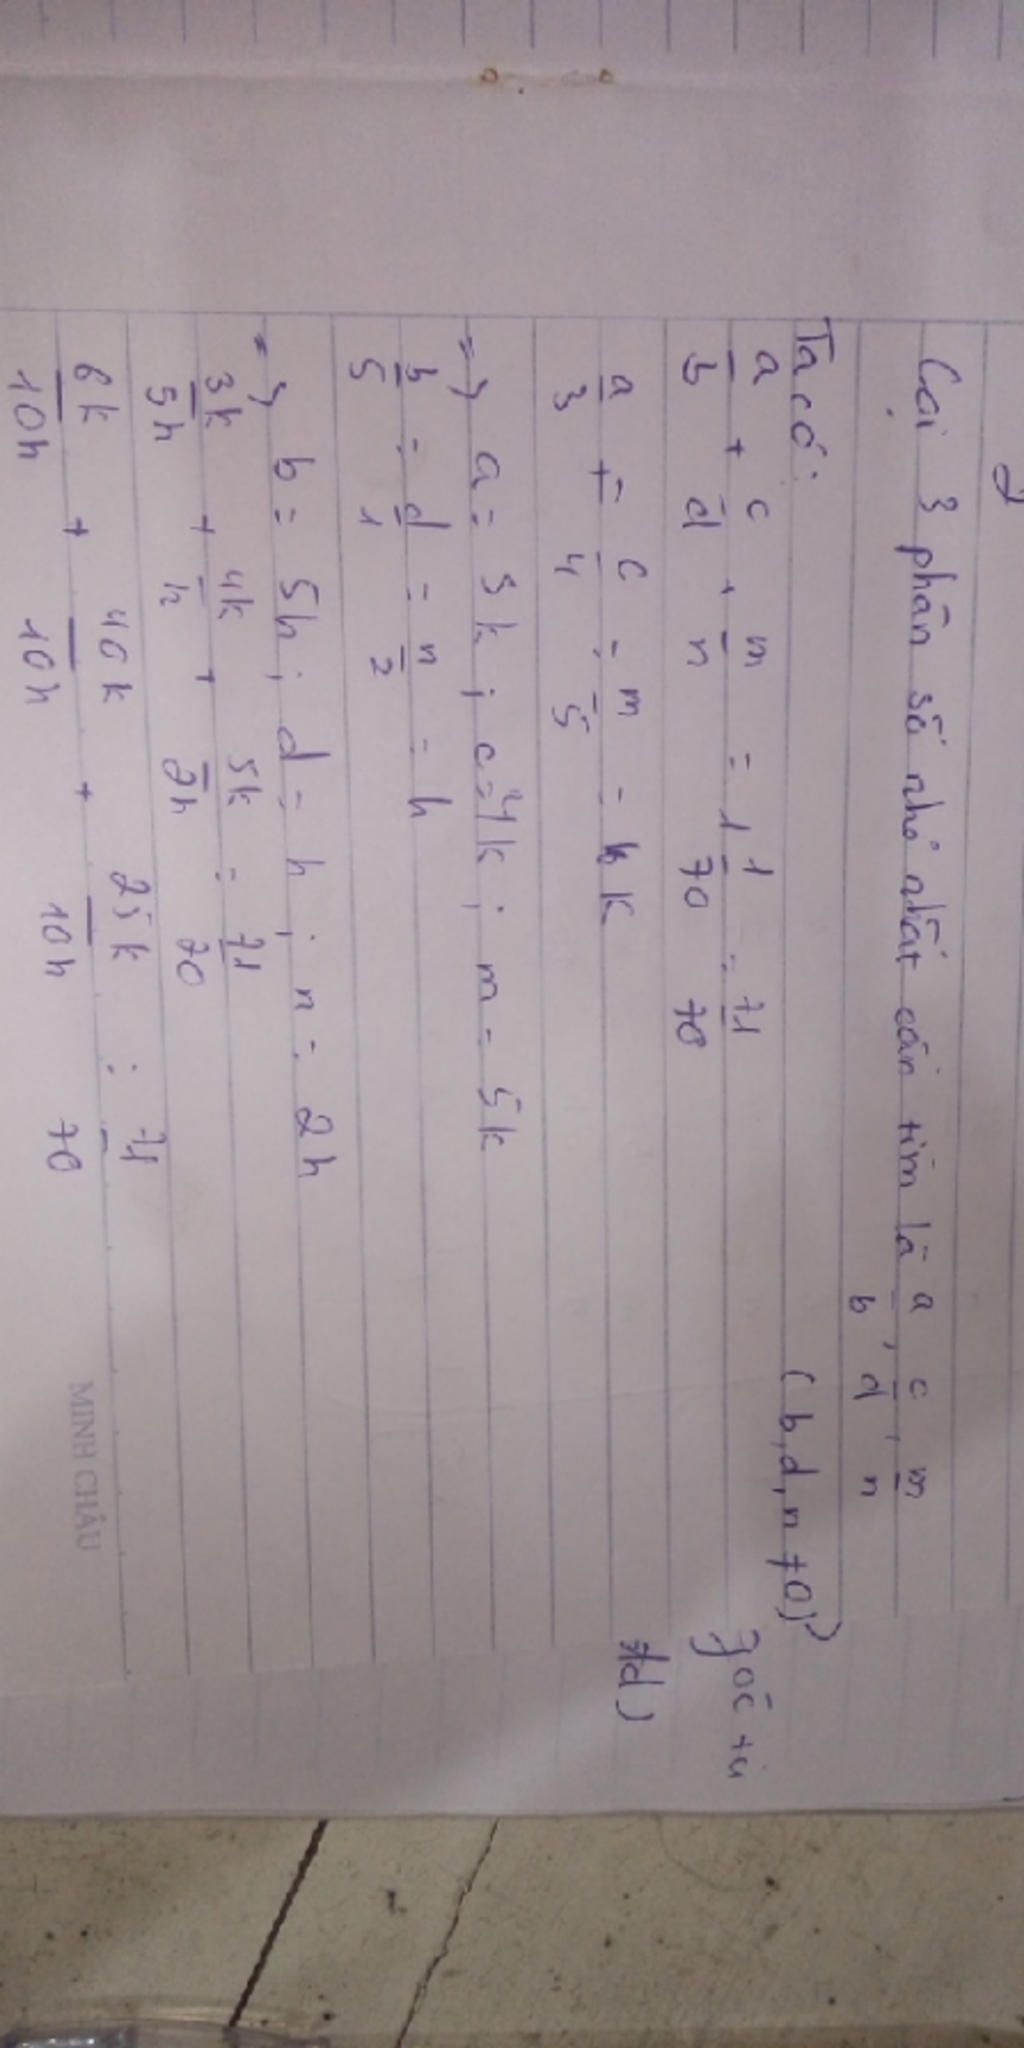 2
Gọi 3 phân số nhỏ nhất cần tìm là a/b, c/d, m/n
(b,d,n ≠0)
Ta có:
a/b + c/d + m/n = 1 1/70 = 71/70
a/3 = c/4 = m/5 = k
=> a = 3k ; c = 4k ; m = 5k
b/5 = d/1 = n/2 = h
=> b = 5h ; d = h ; n = 2h
3k/5h + 4k/h + 5k/2h = 71/70
6k/10h + 40k/10h + 25k/10h = 71/70
MINH CHÂU